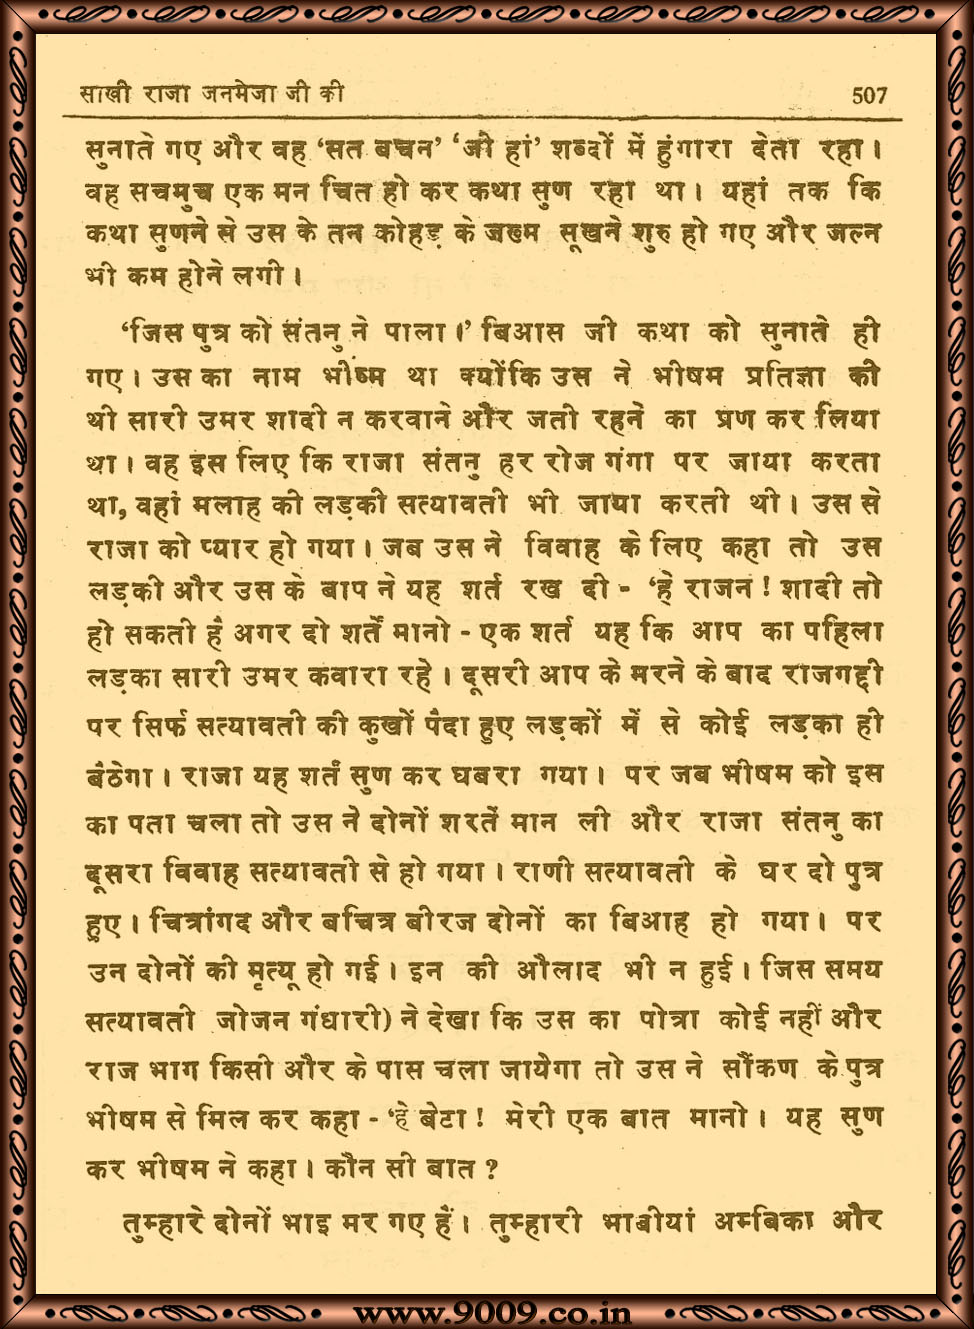 साखी राजा जनमेजा जी की 507
सुनाते गए और वह ‘सत बचन’ ‘जी हां’ शब्दों में हुंगारा देता रहा।
वह सचमुच एक मन चित हो कर कथा सुण रहा था। यहां तक कि
कथा सुणने से उस के तन कोहड़ के जख्म सूखने शुरु हो गए और जल्न
भी कम होने लगी।
‘जिस पुत्र को संतनु ने पाला।’ बिआस जी कथा को सुनाते ही
गए। उस का नाम भीष्म था क्योंकि उस ने भीषम प्रतिज्ञा की
थी सारी उमर शादी न करवाने और जती रहने का प्रण कर लिया
था। वह इस लिए कि राजा संतनु हर रोज गंगा पर जाया करता
था, वहां मलाह की लड़की सत्यावती भी जाया करती थी। उस से
राजा को प्यार हो गया। जब उस ने विवाह के लिए कहा तो उस
लड़की और उस के बाप ने यह शर्त रख दी - ‘हे राजन ! शादी तो
हो सकती है अगर दो शर्तें मानो - एक शर्त यह कि आप का पहिला
लड़का सारी उमर कवारा रहे। दूसरी आप के मरने के बाद राजगद्दी
पर सिर्फ सत्यावती की कुखों पैदा हुए लड़कों में से कोई लड़का ही
बैठेगा। राजा यह शर्त सुण कर घबरा गया। पर जब भीषम को इस
का पता चला तो उस ने दोनों शरतें मान ली और राजा संतनु का
दूसरा विवाह सत्यावती से हो गया। राणी सत्यावती के घर दो पुत्र
हुए। चित्रांगद और बचित्र बीरज दोनों का बिआह हो गया। पर
उन दोनों की मृत्यू हो गई। इन की औलाद भी न हुई। जिस समय
सत्यावती जोजन गंधारी) ने देखा कि उस का पोत्रा कोई नहीं और
राज भाग किसी और के पास चला जायेगा तो उस ने सौंकण के पुत्र
भीषम से मिल कर कहा - ‘हे बेटा ! मेरी एक बात मानो। यह सुण
कर भीषम ने कहा। कौन सी बात ?
तुम्हारे दोनों भाइ मर गए हैं। तुम्हारी भाबीयां अम्बिका और
www.9009.co.in